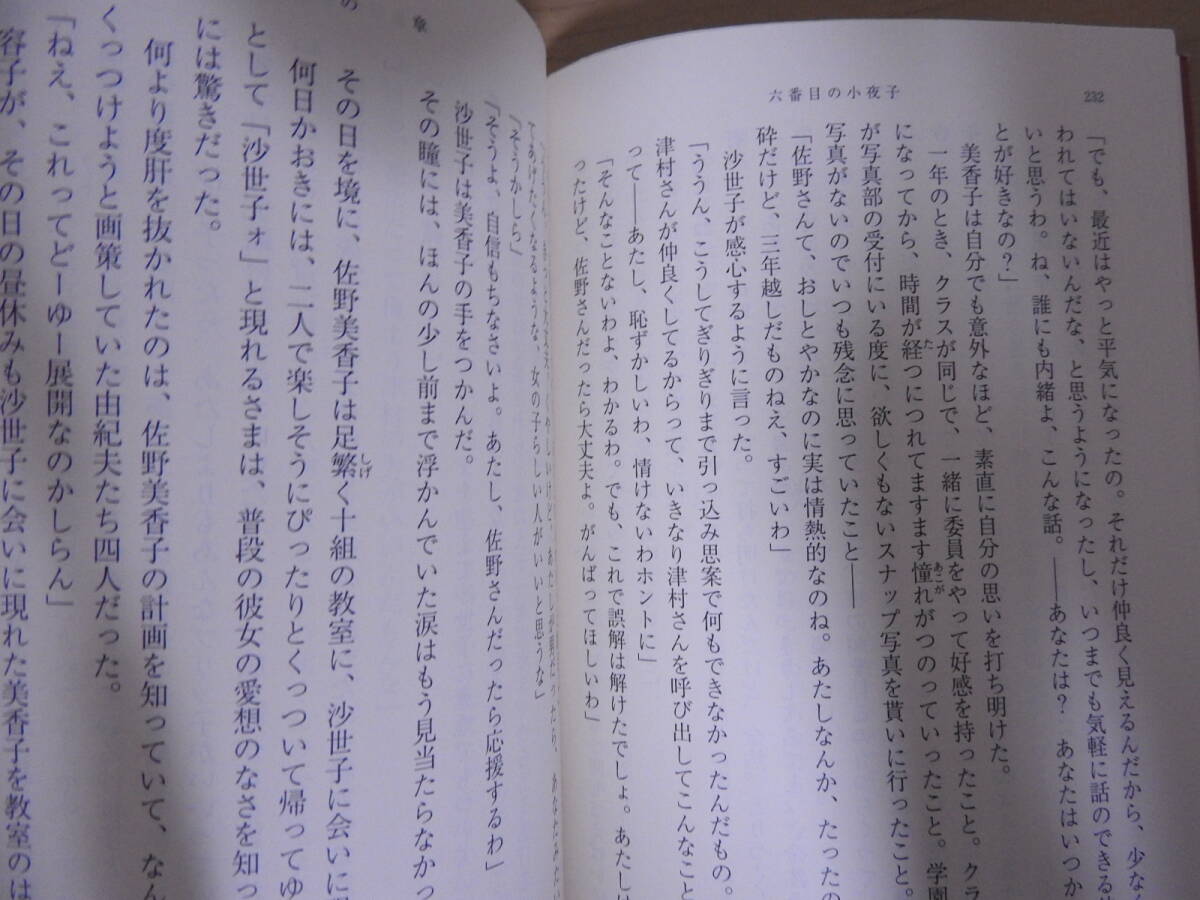 232
六番目の小夜子
「でも、最近はやっと平気になったの。それだけ仲良く見えるんだから、少なく
われてはいないんだな、と思うようになったし、いつまでも気軽に話のできる
いと思うわ。ね、誰にも内緒よ、こんな話。――あなたは？　あなたはいつか
とが好きなの？」
美香子は自分でも意外なほど、素直に自分の思いを打ち明けた。
一年のとき、クラスが同じで、一緒に委員をやって好感を持ったこと。ク
になってから、時間が経つにつれてますます憧れがつのっていったこと。学園
が写真部の受付にいる度に、欲しくもないスナップ写真を貰いに行ったこと。
写真がないのでいつも残念に思っていたこと――
「佐野さんて、おしとやかなのに実は情熱的なのね。あたしなんか、たったの
砕だけど、三年越しだものねえ、すごいわ」
沙世子が感心するように言った。
「ううん、こうしてぎりぎりまで引っ込み思案で何もできなかったんだもの。
津村さんが仲良くしてるからって、いきなり津村さんを呼び出してこんなこと
って――あたし、恥ずかしいわ、情けないわホントに」
「そんなことないわよ、わかるわ。でも、これで誤解は解けたでしょ。あたしは
ったけど、佐野さんだったら大丈夫よ。がんばってほしいわ」
てあげたくなるような、女の子らしい人がいいと思うな」
「そうかしら」
「そうよ、自信もちなさいよ。あたし、佐野さんだったら応援するわ」
沙世子は美香子の手をつかんだ。
その瞳には、ほんの少し前まで浮かんでいた涙はもう見当たらなかっ
章
の
その日を境に、佐野美香子は足繁く十組の教室に、沙世子に会いに
何日かおきには、二人で楽しそうにぴったりとくっついて帰ってゆ
として「沙世子ォ」と現れるさまは、普段の彼女の愛想のなさを知っ
には驚きだった。
何より度肝を抜かれたのは、佐野美香子の計画を知っていて、なん
くっつけようと画策していた由紀夫たち四人だった。
「ねえ、これってどーゆー展開なのかしらん」
容子が、その日の昼休みも沙世子に会いに現れた美香子を教室のは